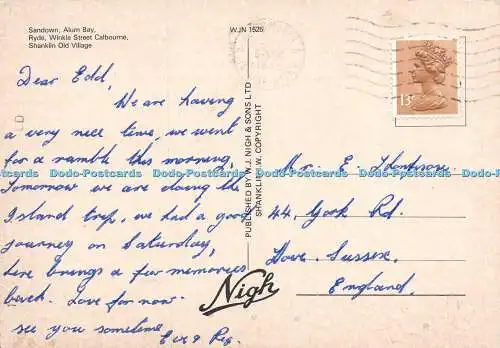 Sandown, Alum Bay,
Ryde, Winkle Street Calbourne,
Shanklin Old Village
W.JN 1525
13P
Dear Edd,
We are having
a very nice time, we went
for a ramble this morning,
Tomorrow we are doing the
Island trip, we had a good
journey on Saturday,
here brings a few memories
back. Love for now.
see you sometime
PUBLISHED BY W.J. NIGH & SONS LTD
SHANKLIN I.O.W. COPYRIGHT
Mr. E. Thompson
44, York Rd.
Hove. Sussex.
England.
Nigh
Dodo-Postcards Dodo-Postcards Dodo-Postcards Dodo-Postcards Dodo-Postcards
Dodo-Postcards Dodo-Postcards Dodo-Postcards Dodo-Postcards Dodo-Postcards